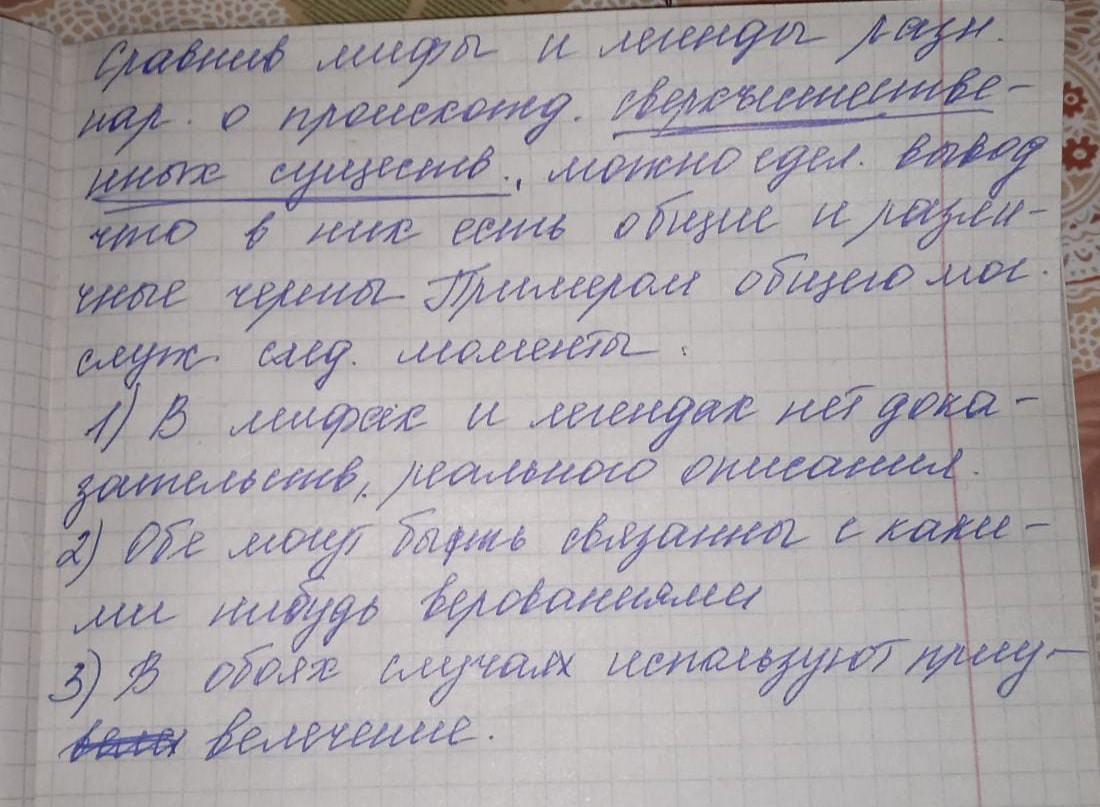 Сравнив мифы и легенды разн.
нар. о происхожд. сверхъестестве-
нных существ., можно сдел. вывод
что в них есть общие и разли-
чные черты Примером общего мог.
служ. след. моменты:
1) В мифах и легендах нет дока-
зательств, реального описания.
2) Обе могут быть связанны с каки-
ми нибудь верованиями
3) В обоях случаях используют приу-
велечение.